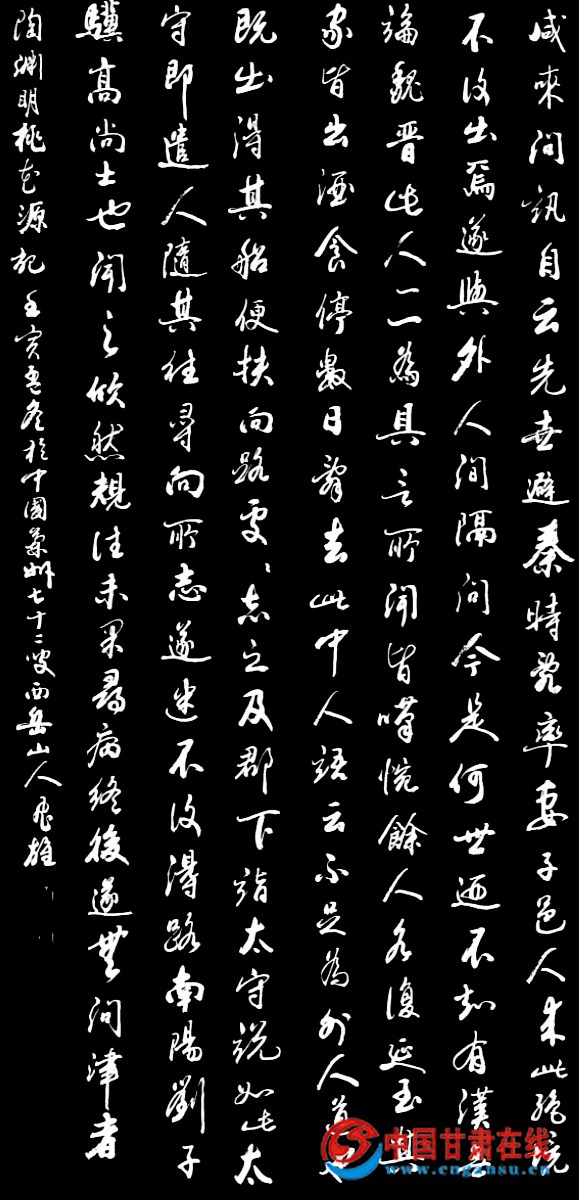 咸來问訊自云先世避秦時亂率妻子邑人來此絶境
不復出焉遂與外人间隔问今是何世迺不知有漢無
論魏晉此人一一為具言所聞皆嘆惋餘人各復延至其
家皆出酒食停數日辭去此中人語云不足為外人道也
既出得其船便扶向路處〻志之及郡下詣太守説如此太
守即遣人隨其往尋向所志遂迷不復得路南陽劉子
驥高尚士也聞之欣然規往未果尋病終後遂無问津者
陶淵明桃花源記 壬寅孟冬於中國蘭州七十二叟西岳山人飛雄
中国甘肃在线
www.cngansu.cn